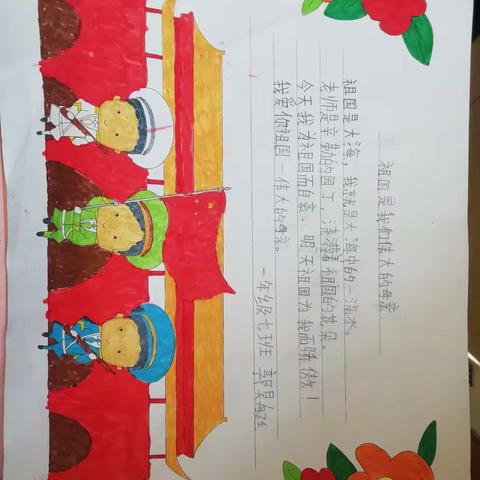 祖国是我们伟大的母亲
祖国是大海，我就是大海中的一流水。
老师是辛勤的园丁，浇灌着祖国的花朵。
今天我为祖国而自豪，明天祖国为我而骄傲！
我爱你祖国—伟大的母亲。
一年级七班 郭昊